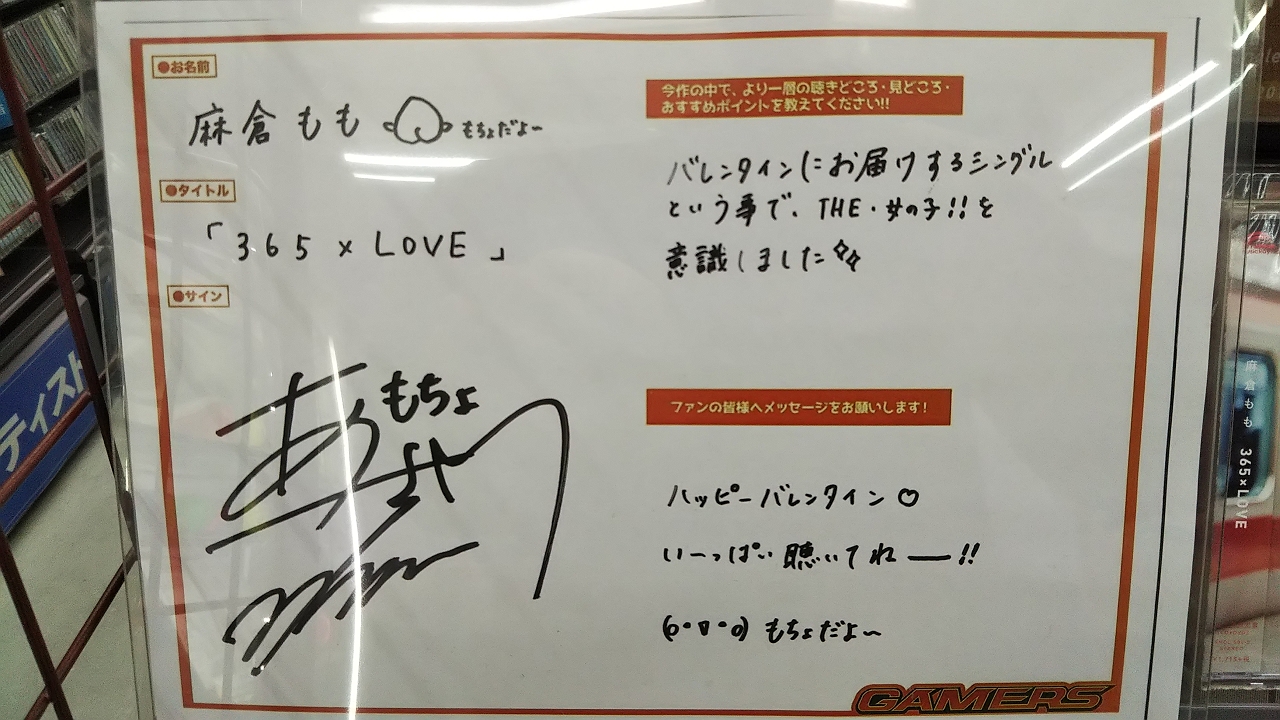 ●お名前
麻倉もも もちょだよ～
●タイトル
「365×LOVE」
●サイン
もちょ
今作の中で、より一層の聴きどころ・見どころ・
おすすめポイントを教えてください!!
バレンタインにお届けするシングル
という事で、THE・女の子!!を
意識しました
ファンの皆様へメッセージをお願いします!
ハッピーバレンタイン♡
いーっぱい聴いてねー!!
もちょだよ～
GAMERS
ティスト
麻倉もも 365×LOVE